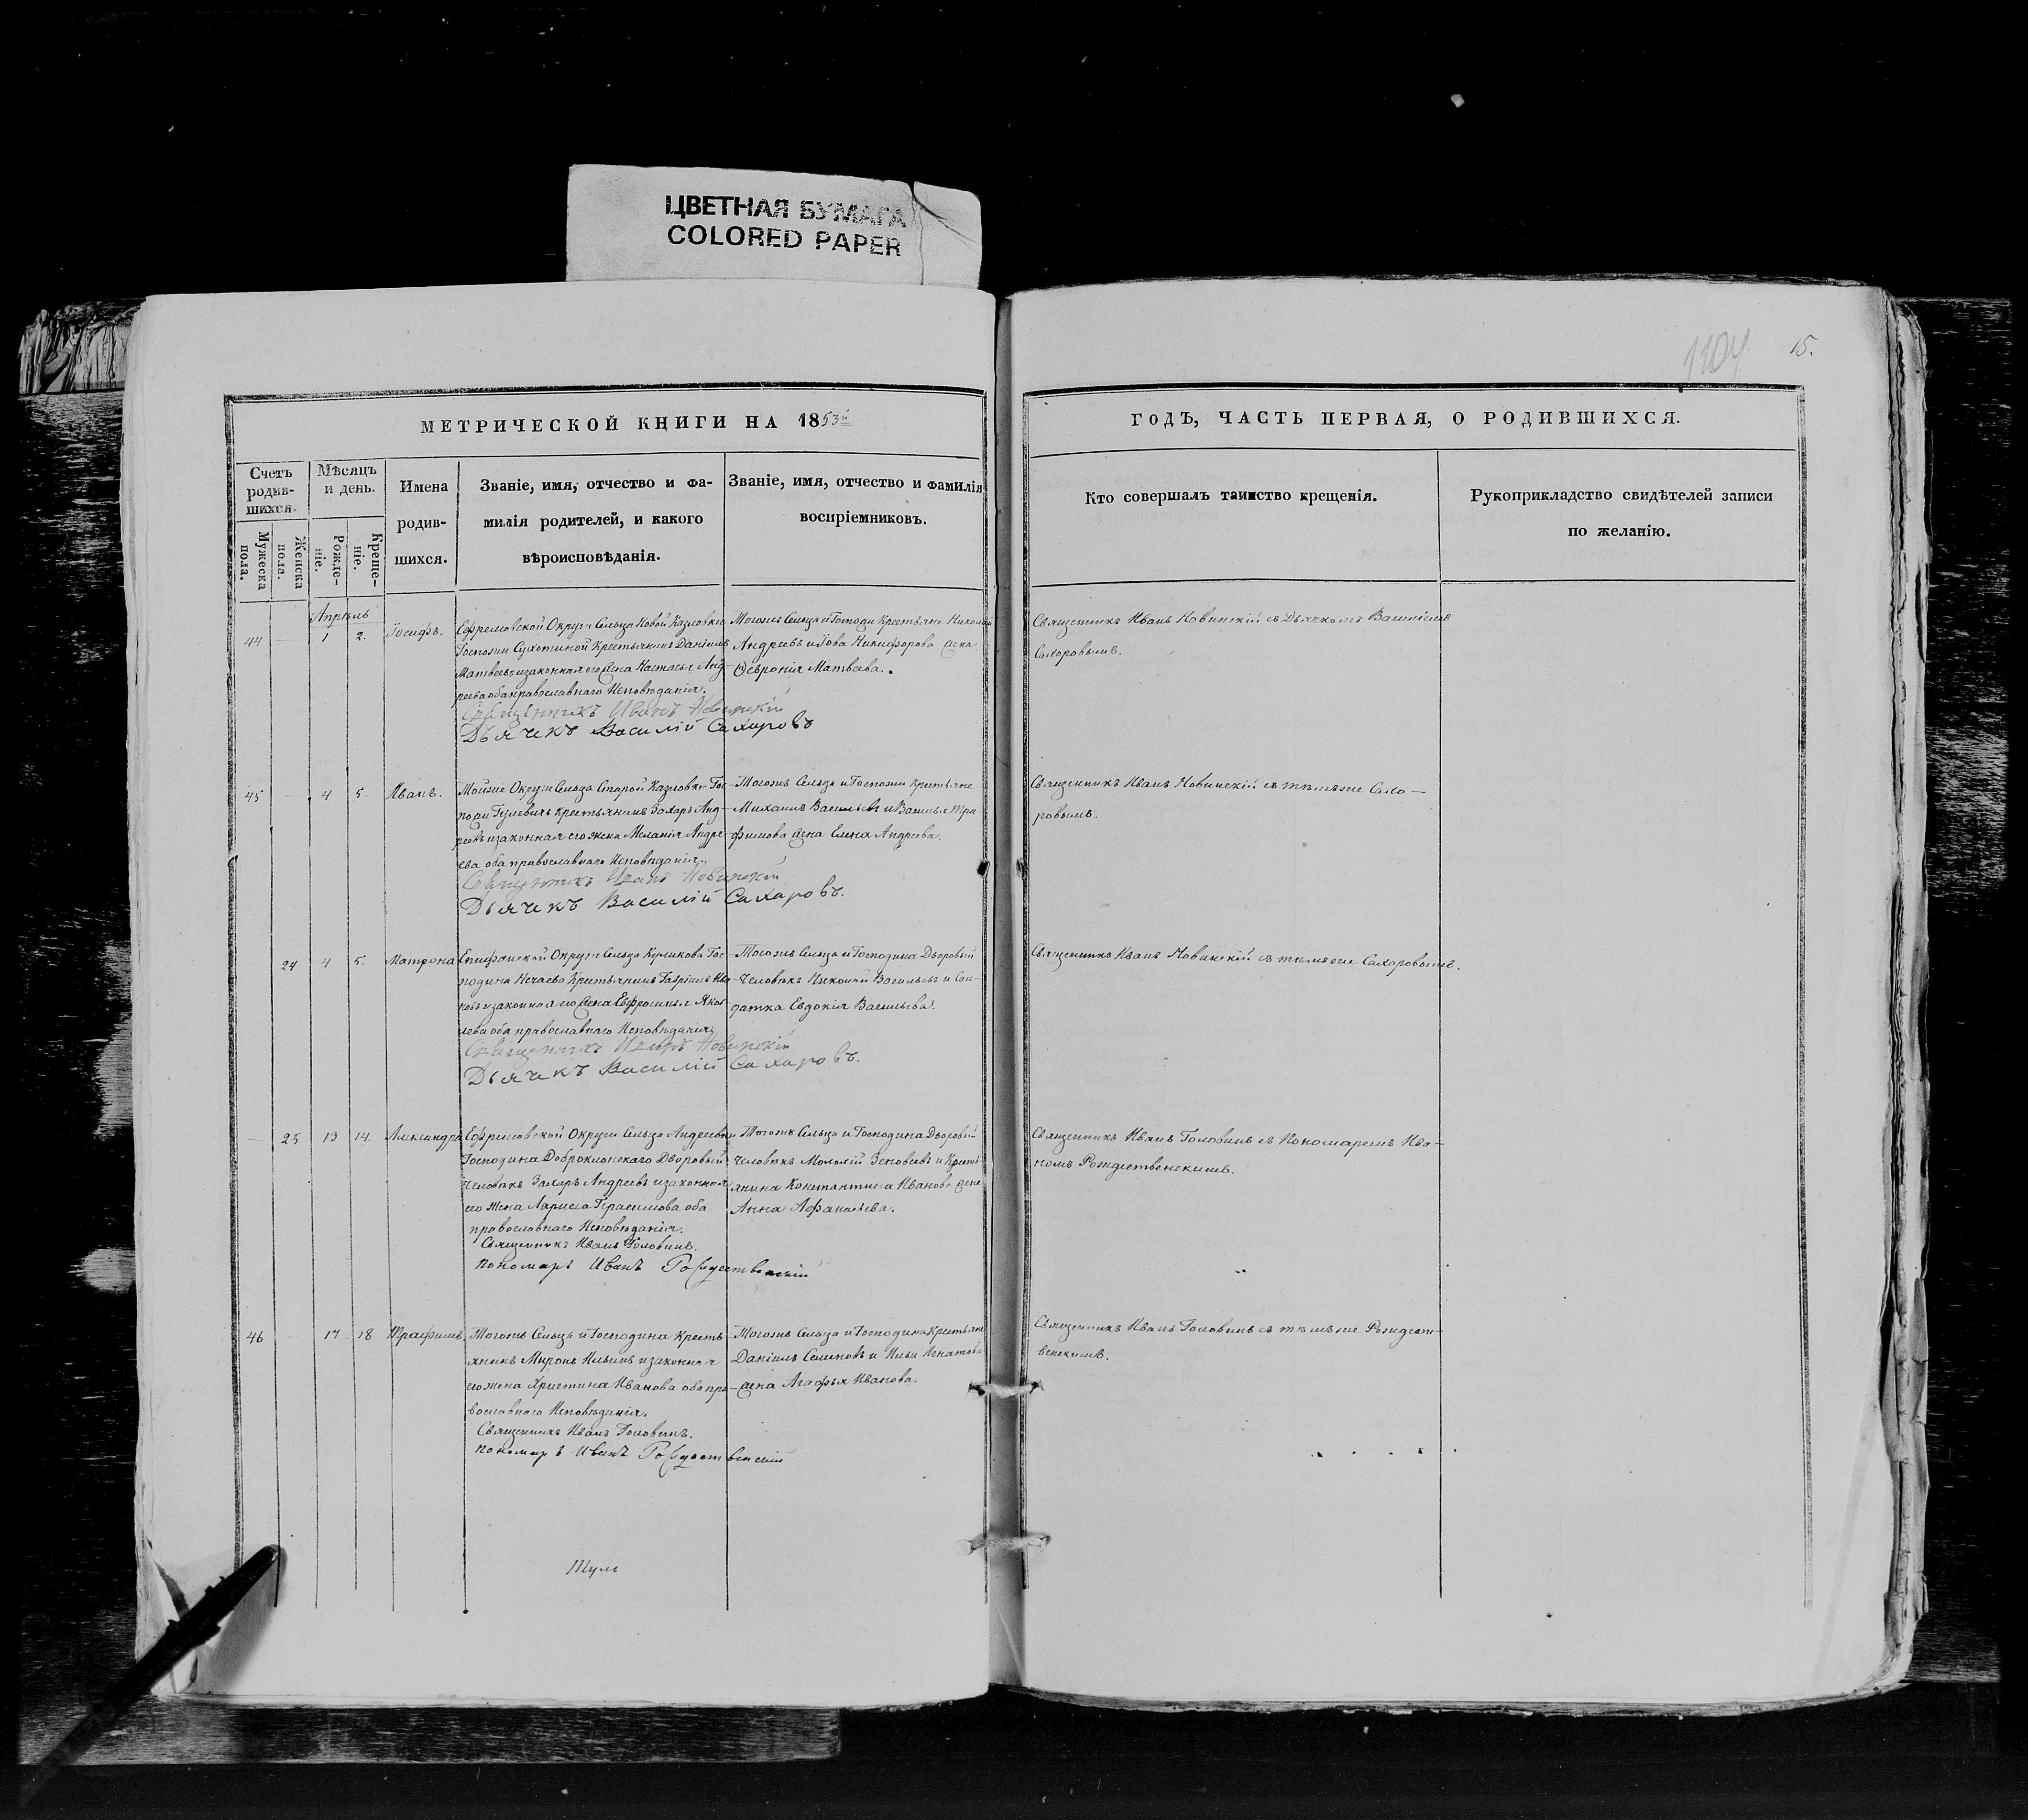 ЦВЕТНАЯ БУМАГА
COLORED PAPER
1104
15.
МЕТРИЧЕСКОЙ КНИГИ НА 1853й
ГОДЪ, ЧАСТЬ ПЕРВАЯ, О РОДИВШИХСЯ.
Счетъ родив-шихся.
Мужеска пола.
Женска пола.
Мѣсяцъ и день.
Рожде-ніе.
Креще-ніе.
Имена
родив-
шихся.
Званіе, имя, отчество и фа-
милія родителей, и какого
вѣроисповѣданія.
Званіе, имя, отчество и фамилія
воспріемниковъ.
Кто совершалъ таинство крещенія.
Рукоприкладство свидѣтелей записи
по желанію.
Апрѣль
44 1 2. Іосифъ.
Ефремовской Округи Сельца Новой Казловки
Госпожи Сухотиной Крестьянинъ Даніилъ
Матвеевъ и законная его жена Настасья Анд-
реева оба православнаго Исповѣданія.
Священникъ Иванъ Новинскій
Дьячекъ Василій Сахаровъ
Тогожъ Сельца и Госпожи Крестьяне Николай
Андреевъ и Іова Никифорова жена
Ѳеврония Матвеева.
Священникъ Иванъ Новинскій съ Дьячкомъ Василіемъ
Сахаровымъ.
45 4 5. Иванъ.
Тойже Округи Сельца Старой Казловки Гос-
пожи крестьянинъ Захаръ Анд-
реевъ и законная его жена Меланія Андре-
ева оба православнаго Исповѣданія.
Священникъ Иванъ Новинскій
Дьячекъ Василій Сахаровъ.
Тогожъ Сельца и Госпожи Крестьяне
Михаилъ Васильевъ и Василья Тра-
фимова жена Елена Андреева.
Священникъ Иванъ Новинскій съ тѣмъже Саха-
ровымъ.
24 4 5. Матрона
Епифанской Округи Сельца Куликовки Гос-
подина Нечаева Крестьянинъ Гавріилъ Ива-
новъ и законная его жена Евфросинья Яков-
лева оба православнаго Исповѣданія.
Священникъ Иванъ Новинскій
Дьячекъ Василій Сахаровъ.
Тогожъ Сельца и Господина Дворовый
Человѣкъ Николай Васильевъ и Сол-
датка Евдокія Васильева.
Священникъ Иванъ Новинскій съ тѣмъже Сахаровымъ.
25 13 14. Александра
Ефремовской Округи Сельца Андреевки
Господина Доброклонскаго Дворовый
Человѣкъ Захаръ Андреевъ и законная
его Жена Лариса Герасимова оба
православнаго Исповѣданія.
Священникъ Иванъ Головинъ.
пономарь Иванъ Рождественскій
Тогожъ Сельца и Господина Дворовый
Человѣкъ Зеновьевъ и Кресть-
янина Константина Иванова жена
Анна Афанасьева.
Священникъ Иванъ Головинъ съ Пономаремъ Ива-
номъ Рождественскимъ.
46 17 18 Трафимъ.
Тогожъ Сельца и Господина Кресть-
янинъ Миронъ Ильинъ и законная
его жена Христина Иванова оба пра-
вославнаго Исповѣданія.
Священникъ Иванъ Головинъ.
пономарь Иванъ Рождественскій
Тогожъ Сельца и Господина Крестьяне
Даніилъ Семеновъ и Ильи Игнатова
жена Агафья Иванова.
Священникъ Иванъ Головинъ съ тѣмъже Рождест-
венскимъ.